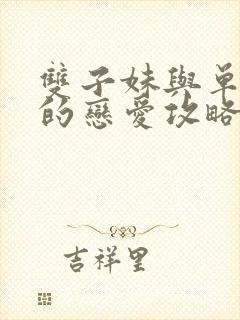 雙子妹與單
的戀愛攻略
吉祥里